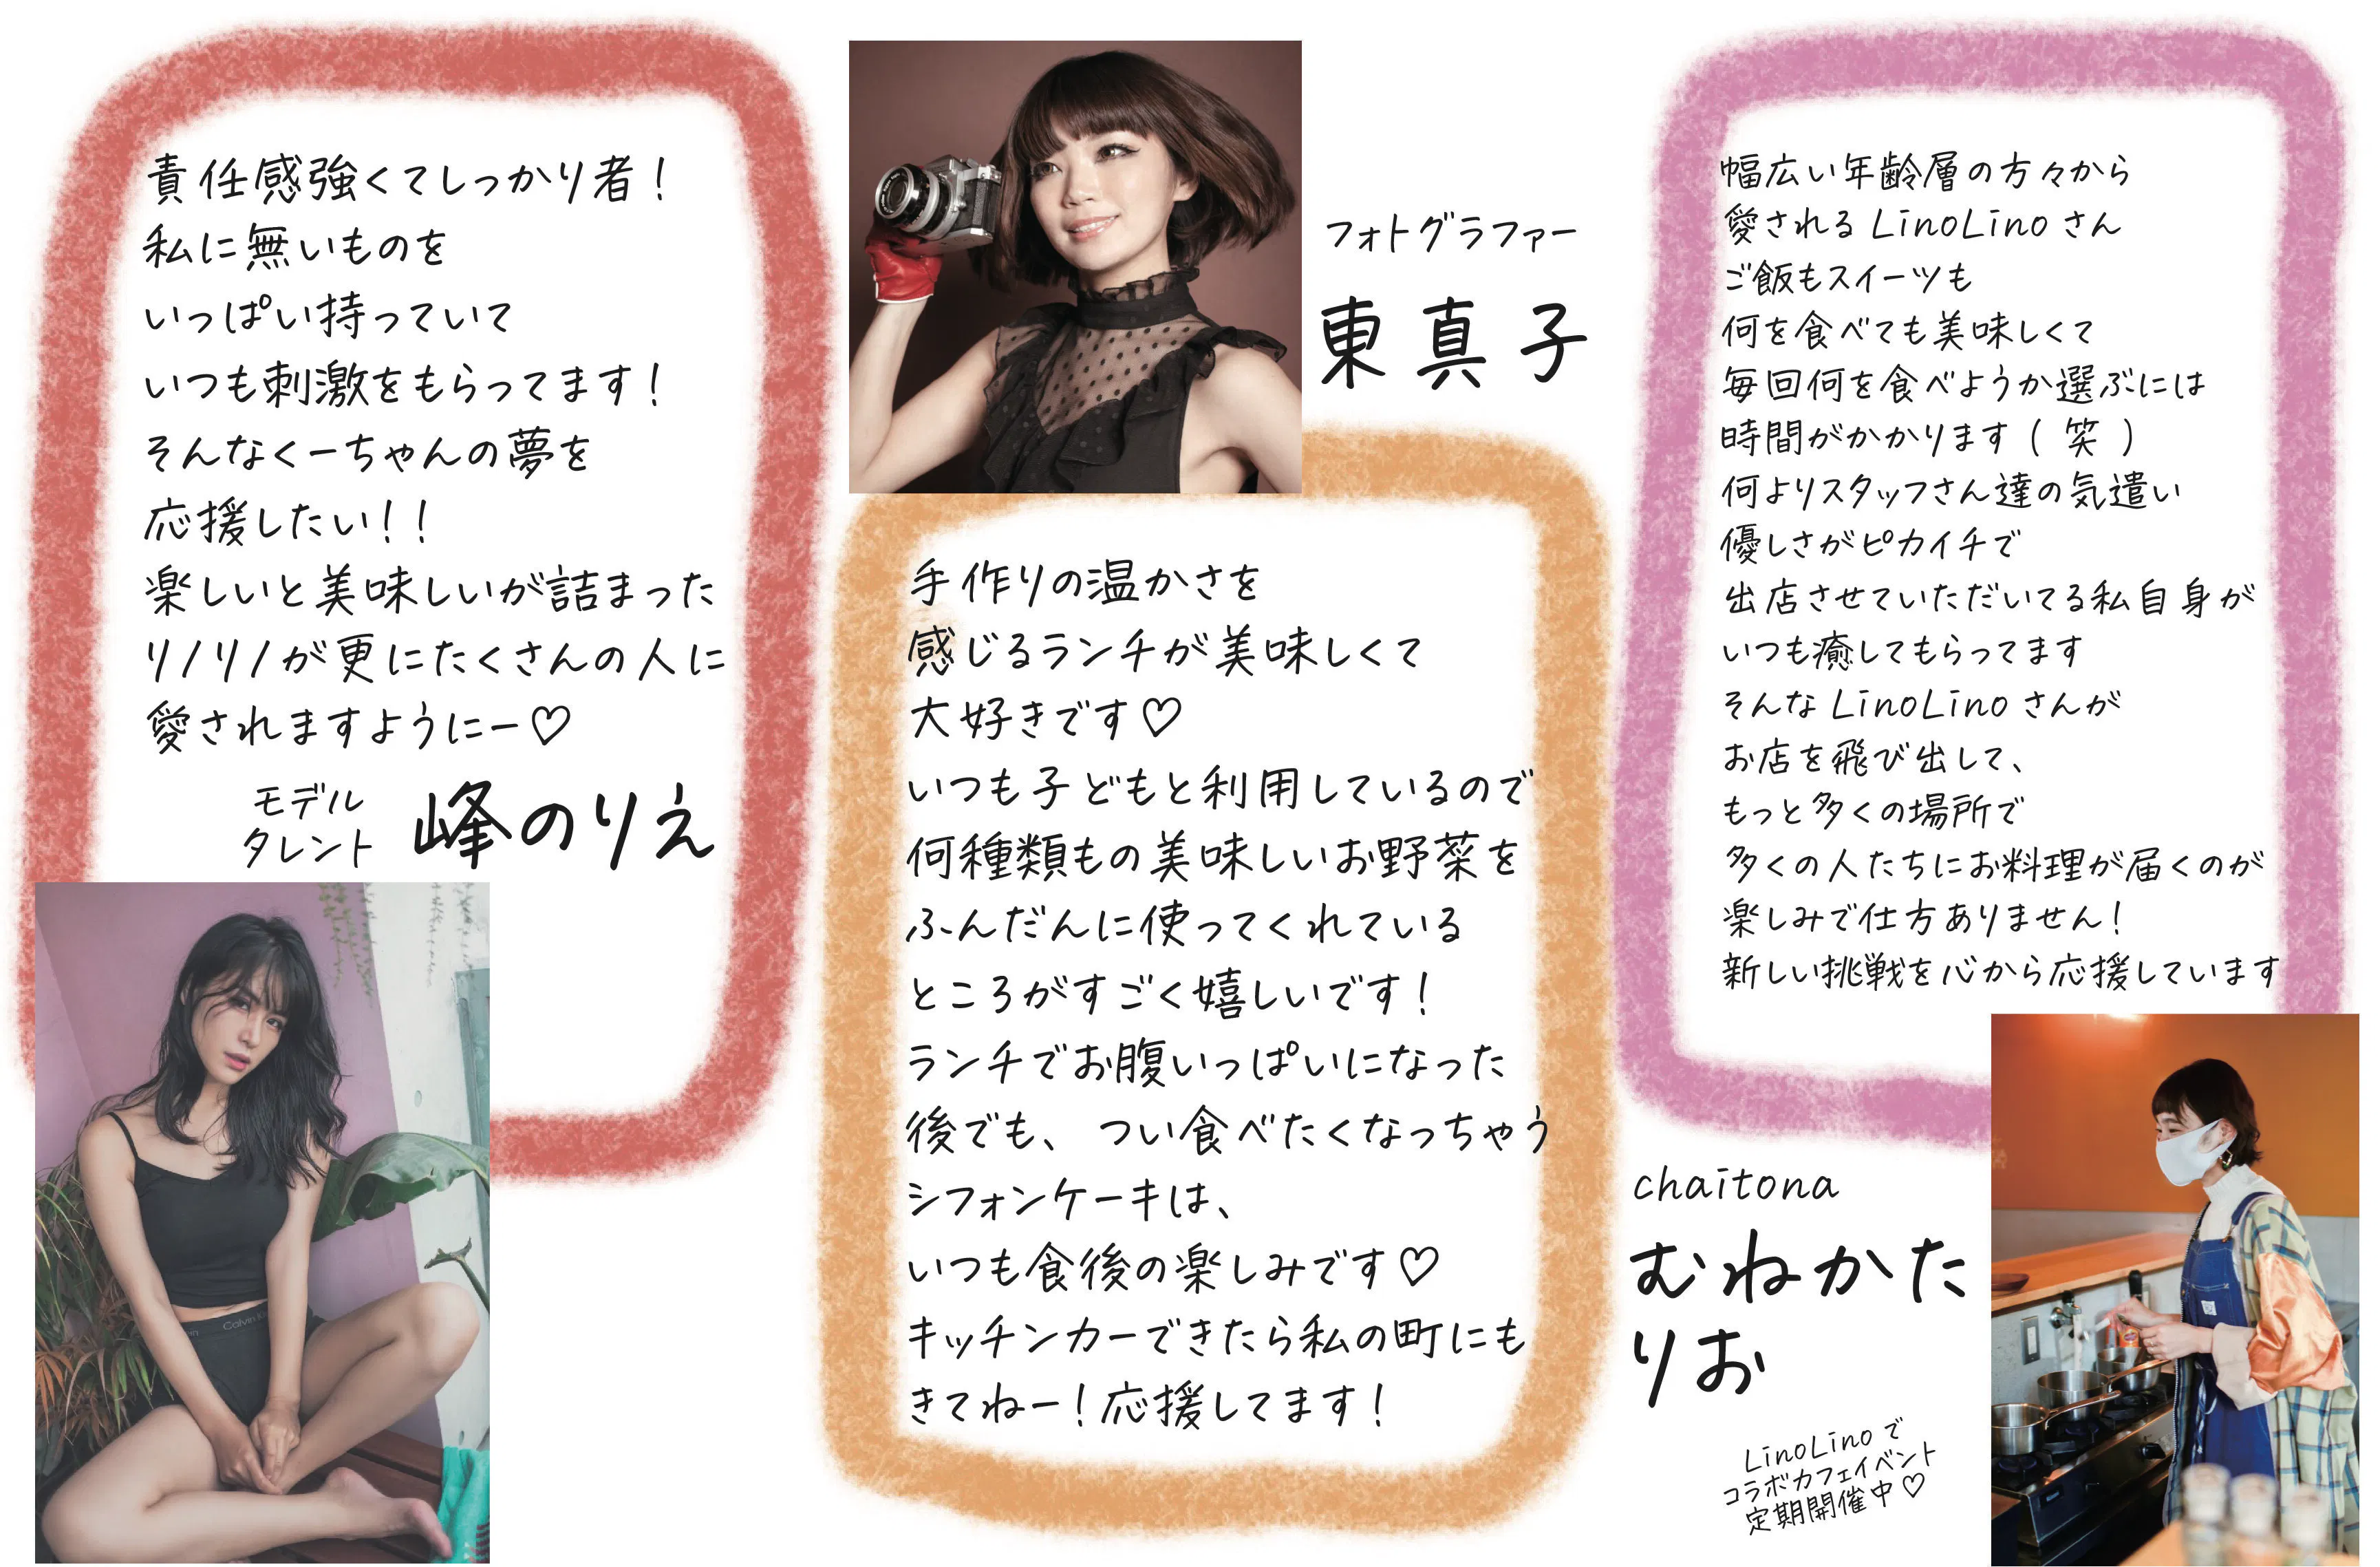 責任感強くてしっかり者！
私に無いものを
いっぱい持っていて
いつも刺激をもらってます！
そんなくーちゃんの夢を
応援したい！！
楽しいと美味しいが詰まった
リノリノが更にたくさんの人に
愛されますようにー♡
モデル
タレント
峰のりえ
フォトグラファー
東真子
手作りの温かさを
感じるランチが美味しくて
大好きです♡
いつも子どもと利用しているので
何種類もの美味しいお野菜を
ふんだんに使ってくれている
ところがすごく嬉しいです！
ランチでお腹いっぱいになった
後でも、つい食べたくなっちゃう
シフォンケーキは、
いつも食後の楽しみです♡
キッチンカーできたら私の町にも
きてねー！応援してます！
幅広い年齢層の方々から
愛される LinoLino さん
ご飯もスイーツも
何を食べても美味しくて
毎回何を食べようか選ぶには
時間がかかります（笑）
何よりスタッフさん達の気遣い
優しさがピカイチで
出店させていただいてる私自身が
いつも癒してもらってます
そんな LinoLino さんが
お店を飛び出して、
もっと多くの場所で
多くの人たちにお料理が届くのが
楽しみで仕方ありません！
新しい挑戦を心から応援しています
chaitona
むねかた
りお
LinoLino で
コラボカフェイベント
定期開催中♡